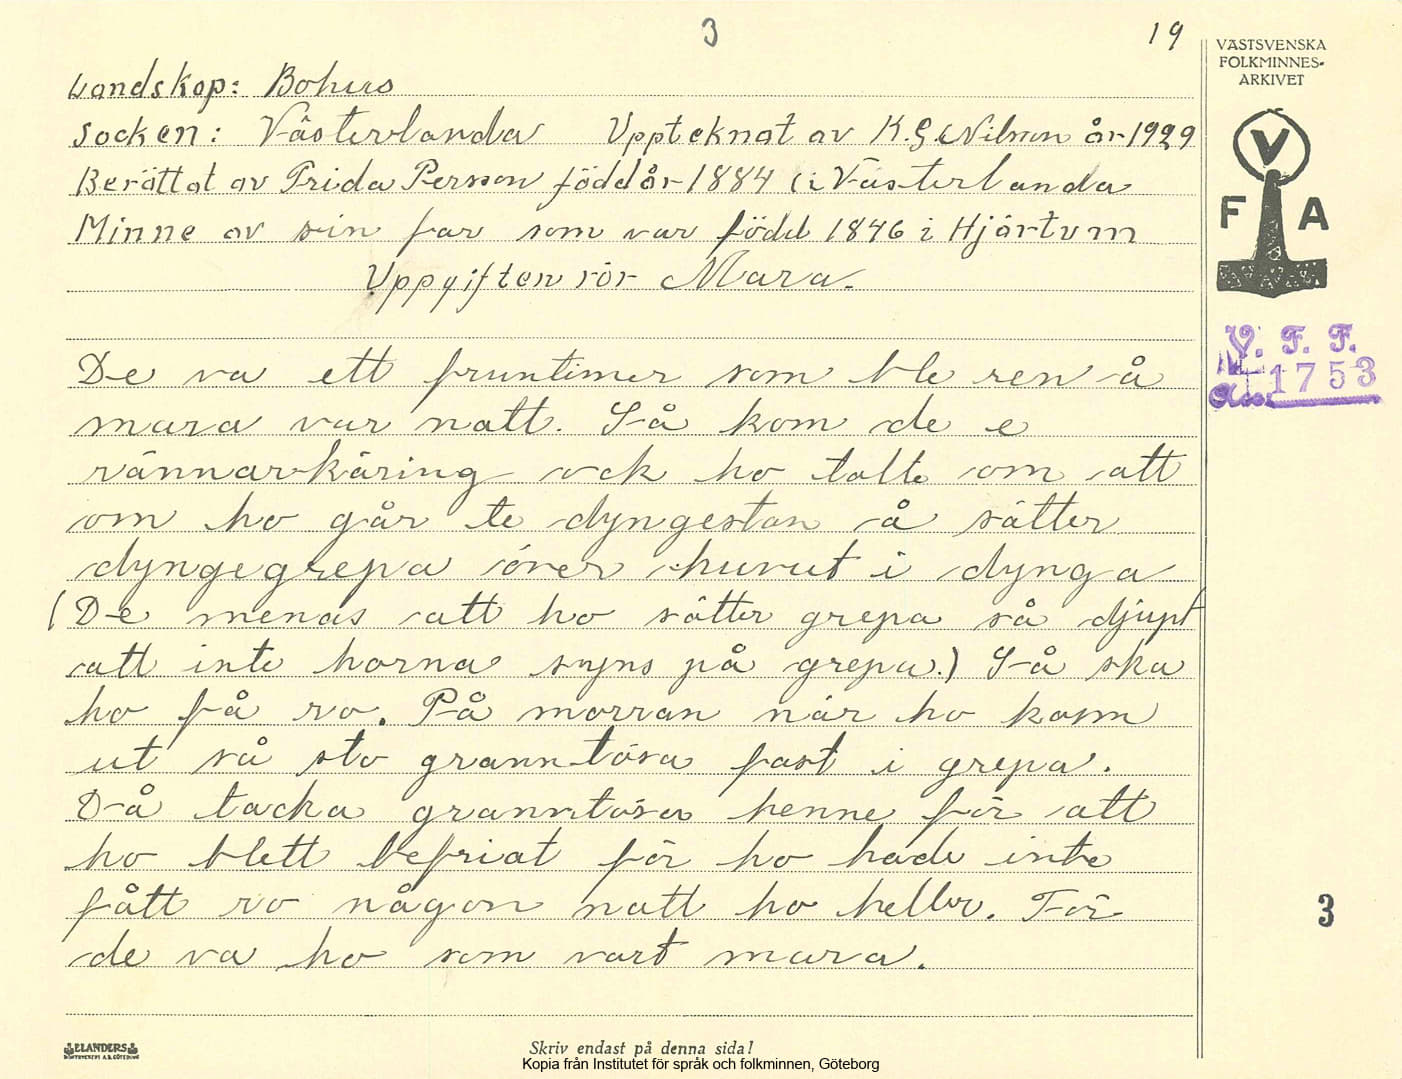 3
19
VÄSTSVENSKA
FOLKMINNES-
ARKIVET
V
F A
V. F. F.
1753
Landskap: Bohus
Socken: Västerlanda Upptecknat av K.G. Nilson år 1929
Berättat av Frida Person född år 1884 i Västerlanda
Minne av sin far som var född 1846 i Hjärtum
Uppgiften rör Mara.
De va ett fruntimer som ble ren å
mara var natt. Så kom de e
vännarkäring ock ho talte om att
om ho går te dyngestan å sätter
dyngegrepa över huvut i dynga
(De menas att ho sätter grepa så djupt
att inte horna syns på grepa.) Så ska
ho få ro. På morran när ho kom
ut så sto granntösa fast i grepa.
Då tacka granntösa henne för att
ho blett befriat för ho hade inte
fått ro någon natt ho heller. För
de va ho som vart mara.
3
ELANDERS
Skriv endast på denna sida!
Kopia från Institutet för språk och folkminnen, Göteborg